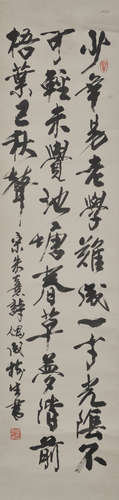 少年易老學難成一寸光陰不
可輕未覺池塘春草夢階前
梧葉已秋聲 宋朱熹詩偶成 生書